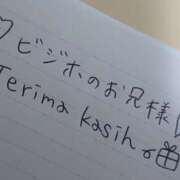 ♡ビジホのお兄様
Terima kasih